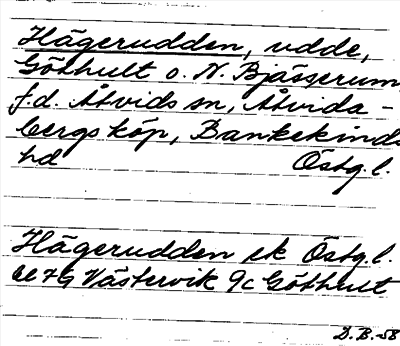 Hägerudden, udde,
Göthult o. N. Bjässerum,
f.d. Åtvids sn, Åtvida-
bergs köp, Bankekinds
hd Östg. l.
Hägerudden ek Östg. l.
7G Västervik 9c Göthult
D.B. -58